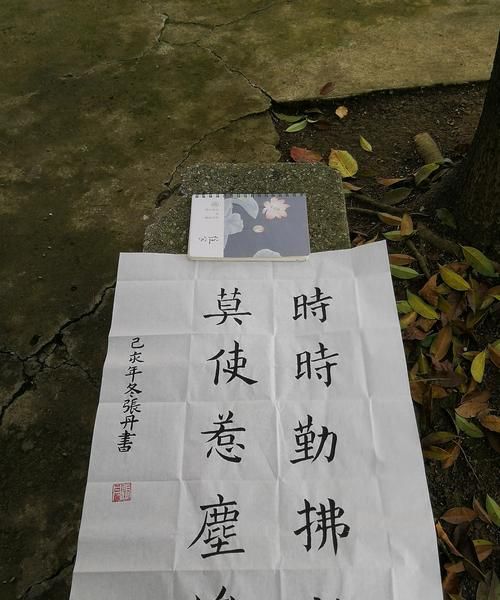 時時勤拂
莫使惹塵
己亥年冬張丹書